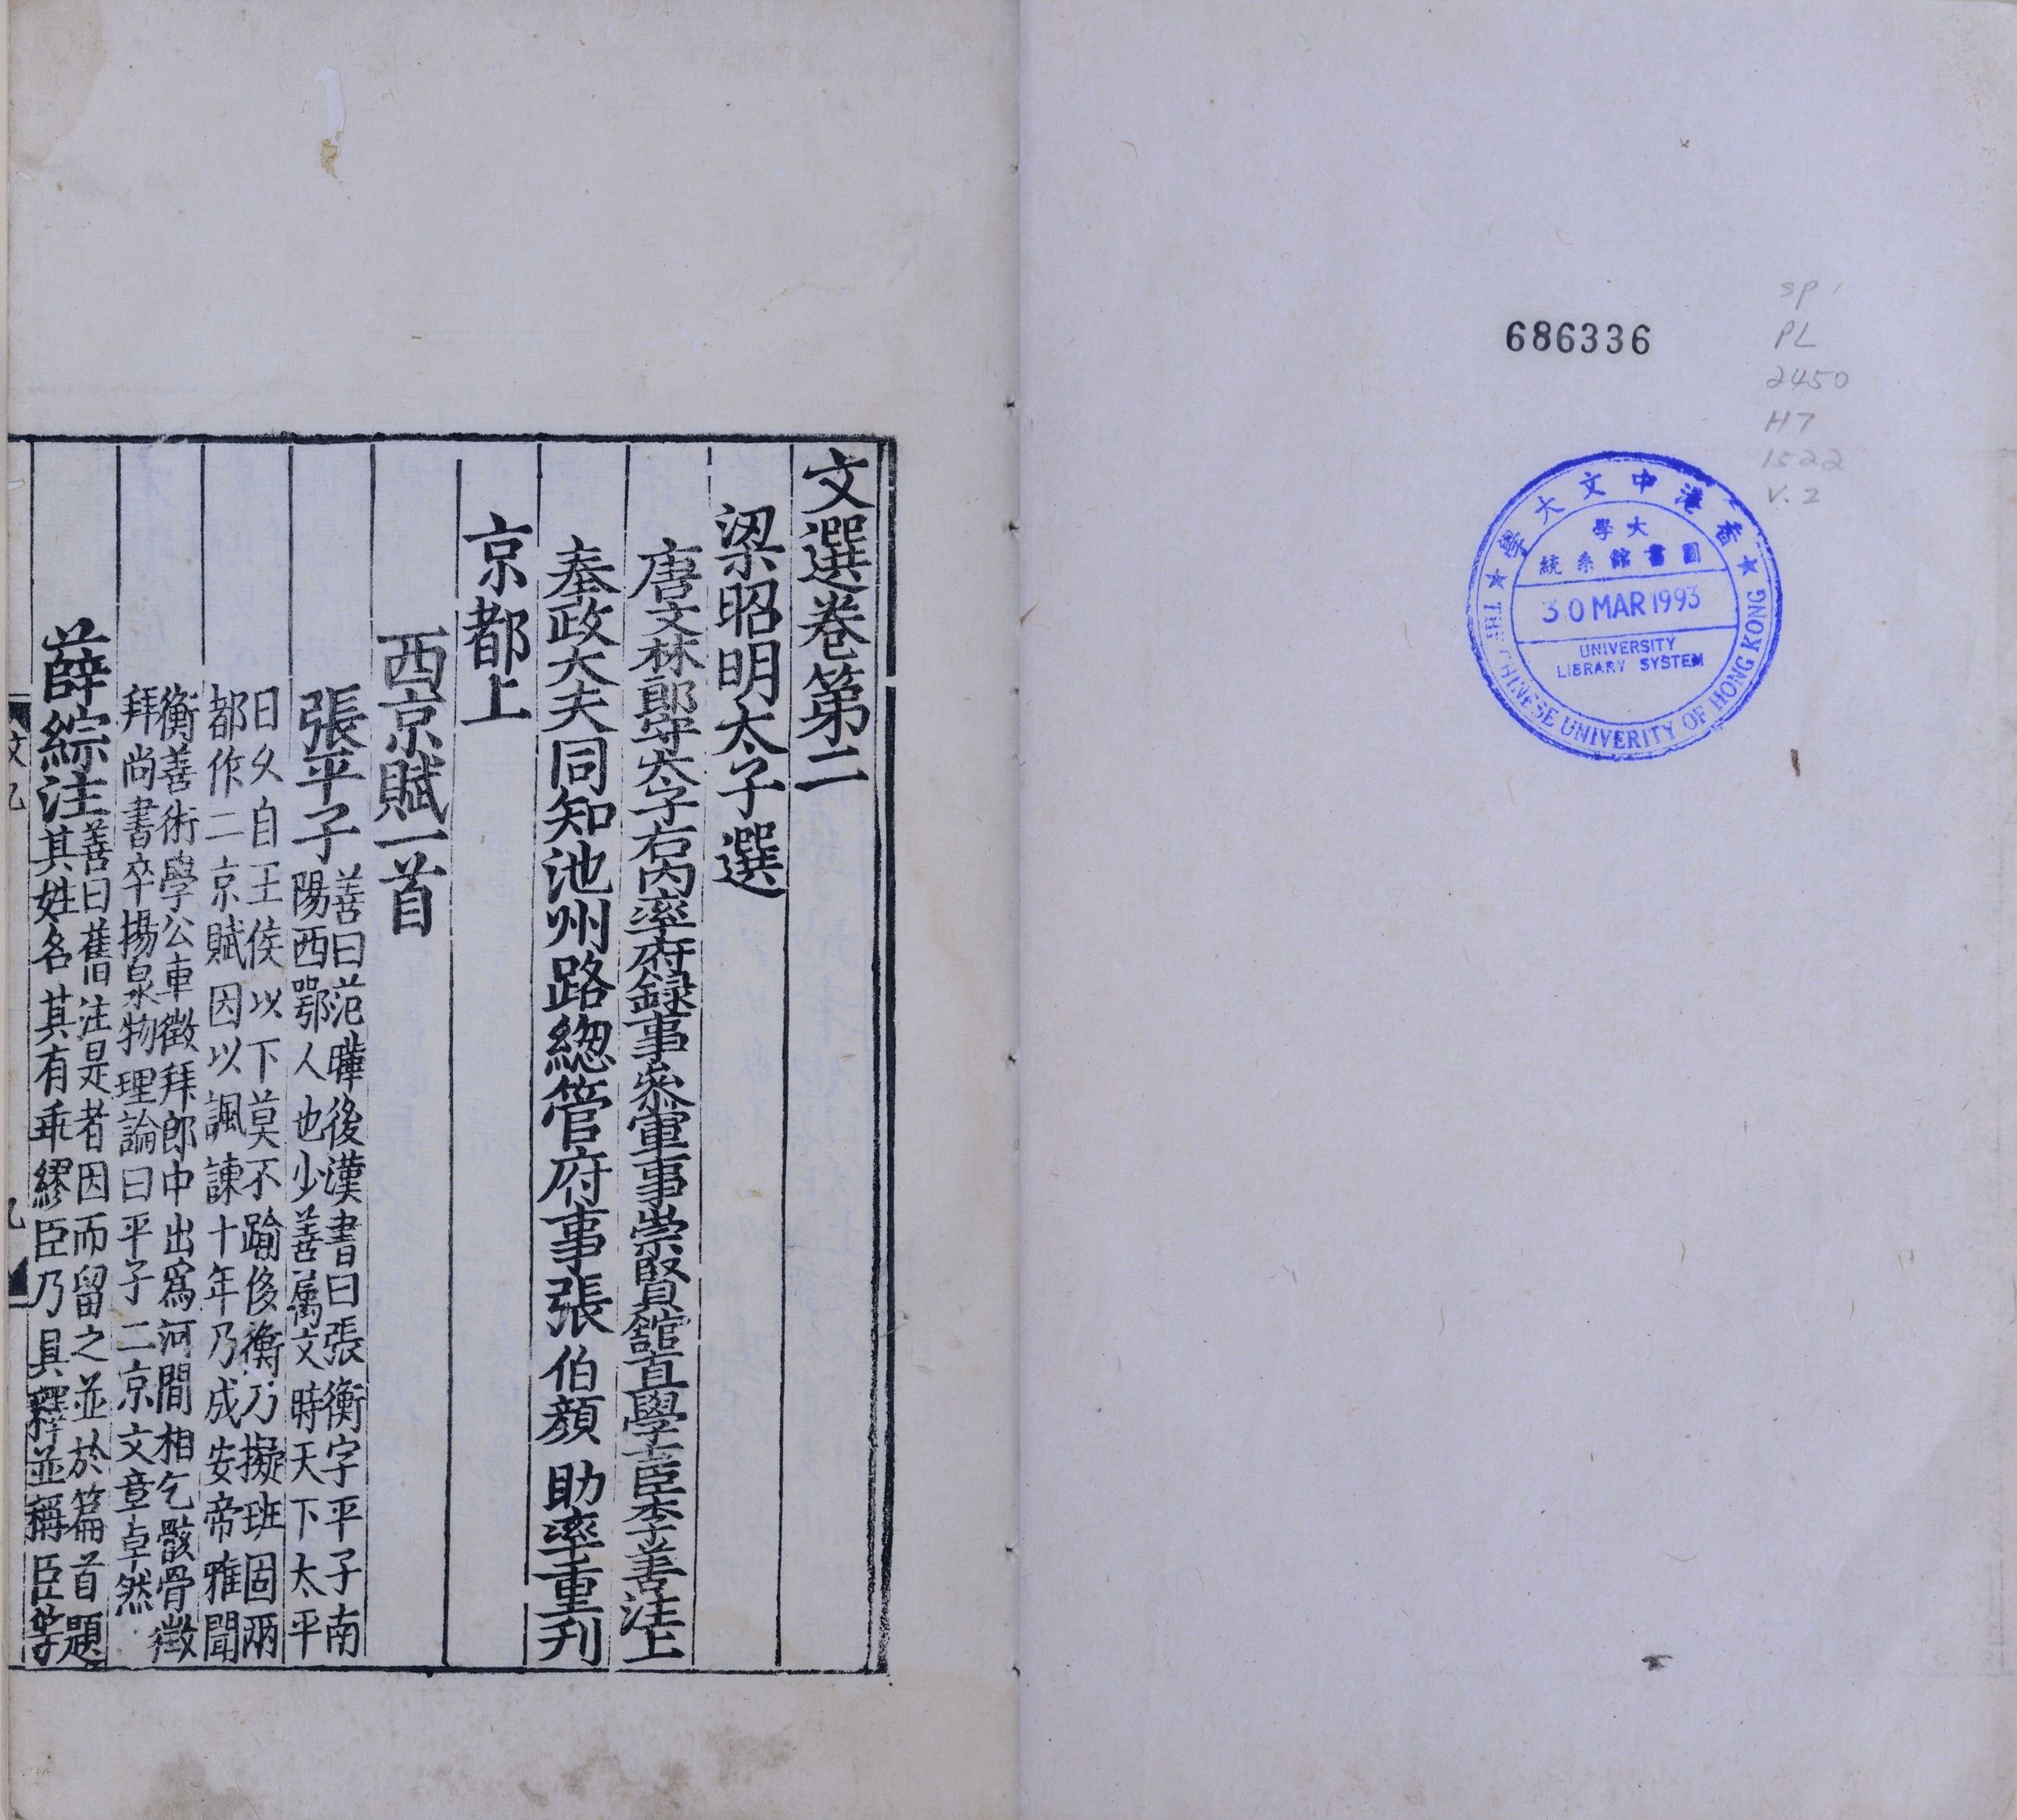 sp
PL
2450
H7
1522
V.2
686336
香港中文大學
大學
圖書館系統
30 MAR 1993
UNIVERSITY
LIBRARY SYSTEM
THE CHINESE UNIVERITY OF HONG KONG
文選卷第二
梁昭明太子選
唐文林郎守太子右内率府錄事參軍事崇賢館直學士臣李善注上
奉政大夫同知池州路緫管府事張伯顏助率重刊
京都上
西京賦一首
張平子
善曰范曄後漢書曰張衡字平子南
陽西鄂人也少善属文時天下太平
日久自王侯以下莫不踰侈衡乃擬班固兩
都作二京賦因以諷諫十年乃成安帝雅聞
衡善術學公車徵拜郎中出爲河間相乞骸骨徵
拜尚書卒揚泉物理論曰平子二京文章卓然
薛綜注
善曰舊注是者因而留之並於篇首題
其姓名其有乖繆臣乃具釋並稱臣善